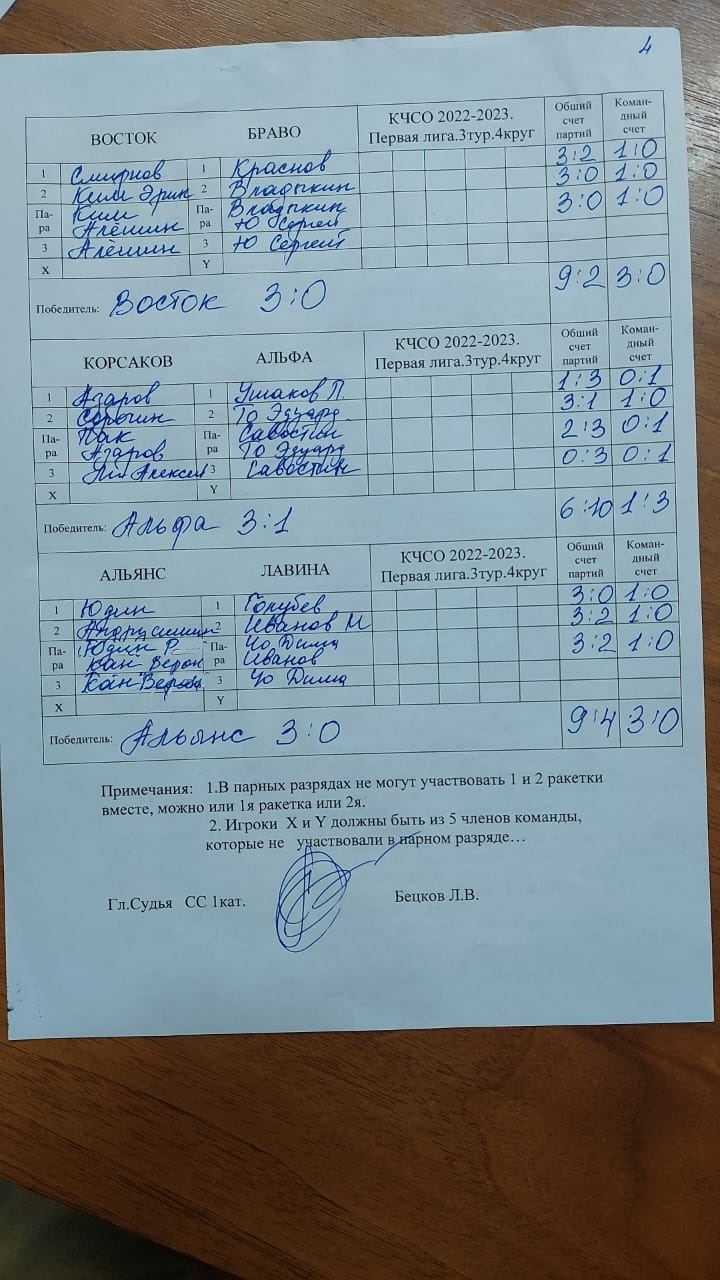 4
ВОСТОК БРАВО КЧСО 2022-2023. Первая лига.3тур.4круг Общий счет партий Коман-дный счет
1 Смирнов 1 Краснов 3:2 1:0
2 Ким Эрик 2 Владыкин 3:0 1:0
Па-ра Ким Па-ра Владыкин 3:0 1:0
Алёшин Ю Сергей
3 Алёшин 3 Ю Сергей
X Y
Победитель: Восток 3:0 9:2 3:0
КОРСАКОВ АЛЬФА КЧСО 2022-2023. Первая лига.3тур.4круг Общий счет партий Коман-дный счет
1 Азаров 1 Ушаков П. 1:3 0:1
2 Сорочин 2 То Эдуард 3:1 1:0
Па-ра Пак Па-ра Савостин 2:3 0:1
Азаров То Эдуард
3 Алексей 3 Савостин 0:3 0:1
X Y
Победитель: Альфа 3:1 6:10 1:3
АЛЬЯНС ЛАВИНА КЧСО 2022-2023. Первая лига.3тур.4круг Общий счет партий Коман-дный счет
1 Юдин 1 Голубев 3:0 1:0
2 2 Иванов М 3:2 1:0
Па-ра Юдин Р Па-ра Чо Дима 3:2 1:0
Кан Верон Иванов
3 Кан 3 Чо Дима
X Y
Победитель: Альянс 3:0 9:4 3:0
Примечания: 1.В парных разрядах не могут участвовать 1 и 2 ракетки
вместе, можно или 1я ракетка или 2я.
2. Игроки X и Y должны быть из 5 членов команды,
которые не участвовали в парном разряде…
Гл.Судья СС 1кат. Бецков Л.В.